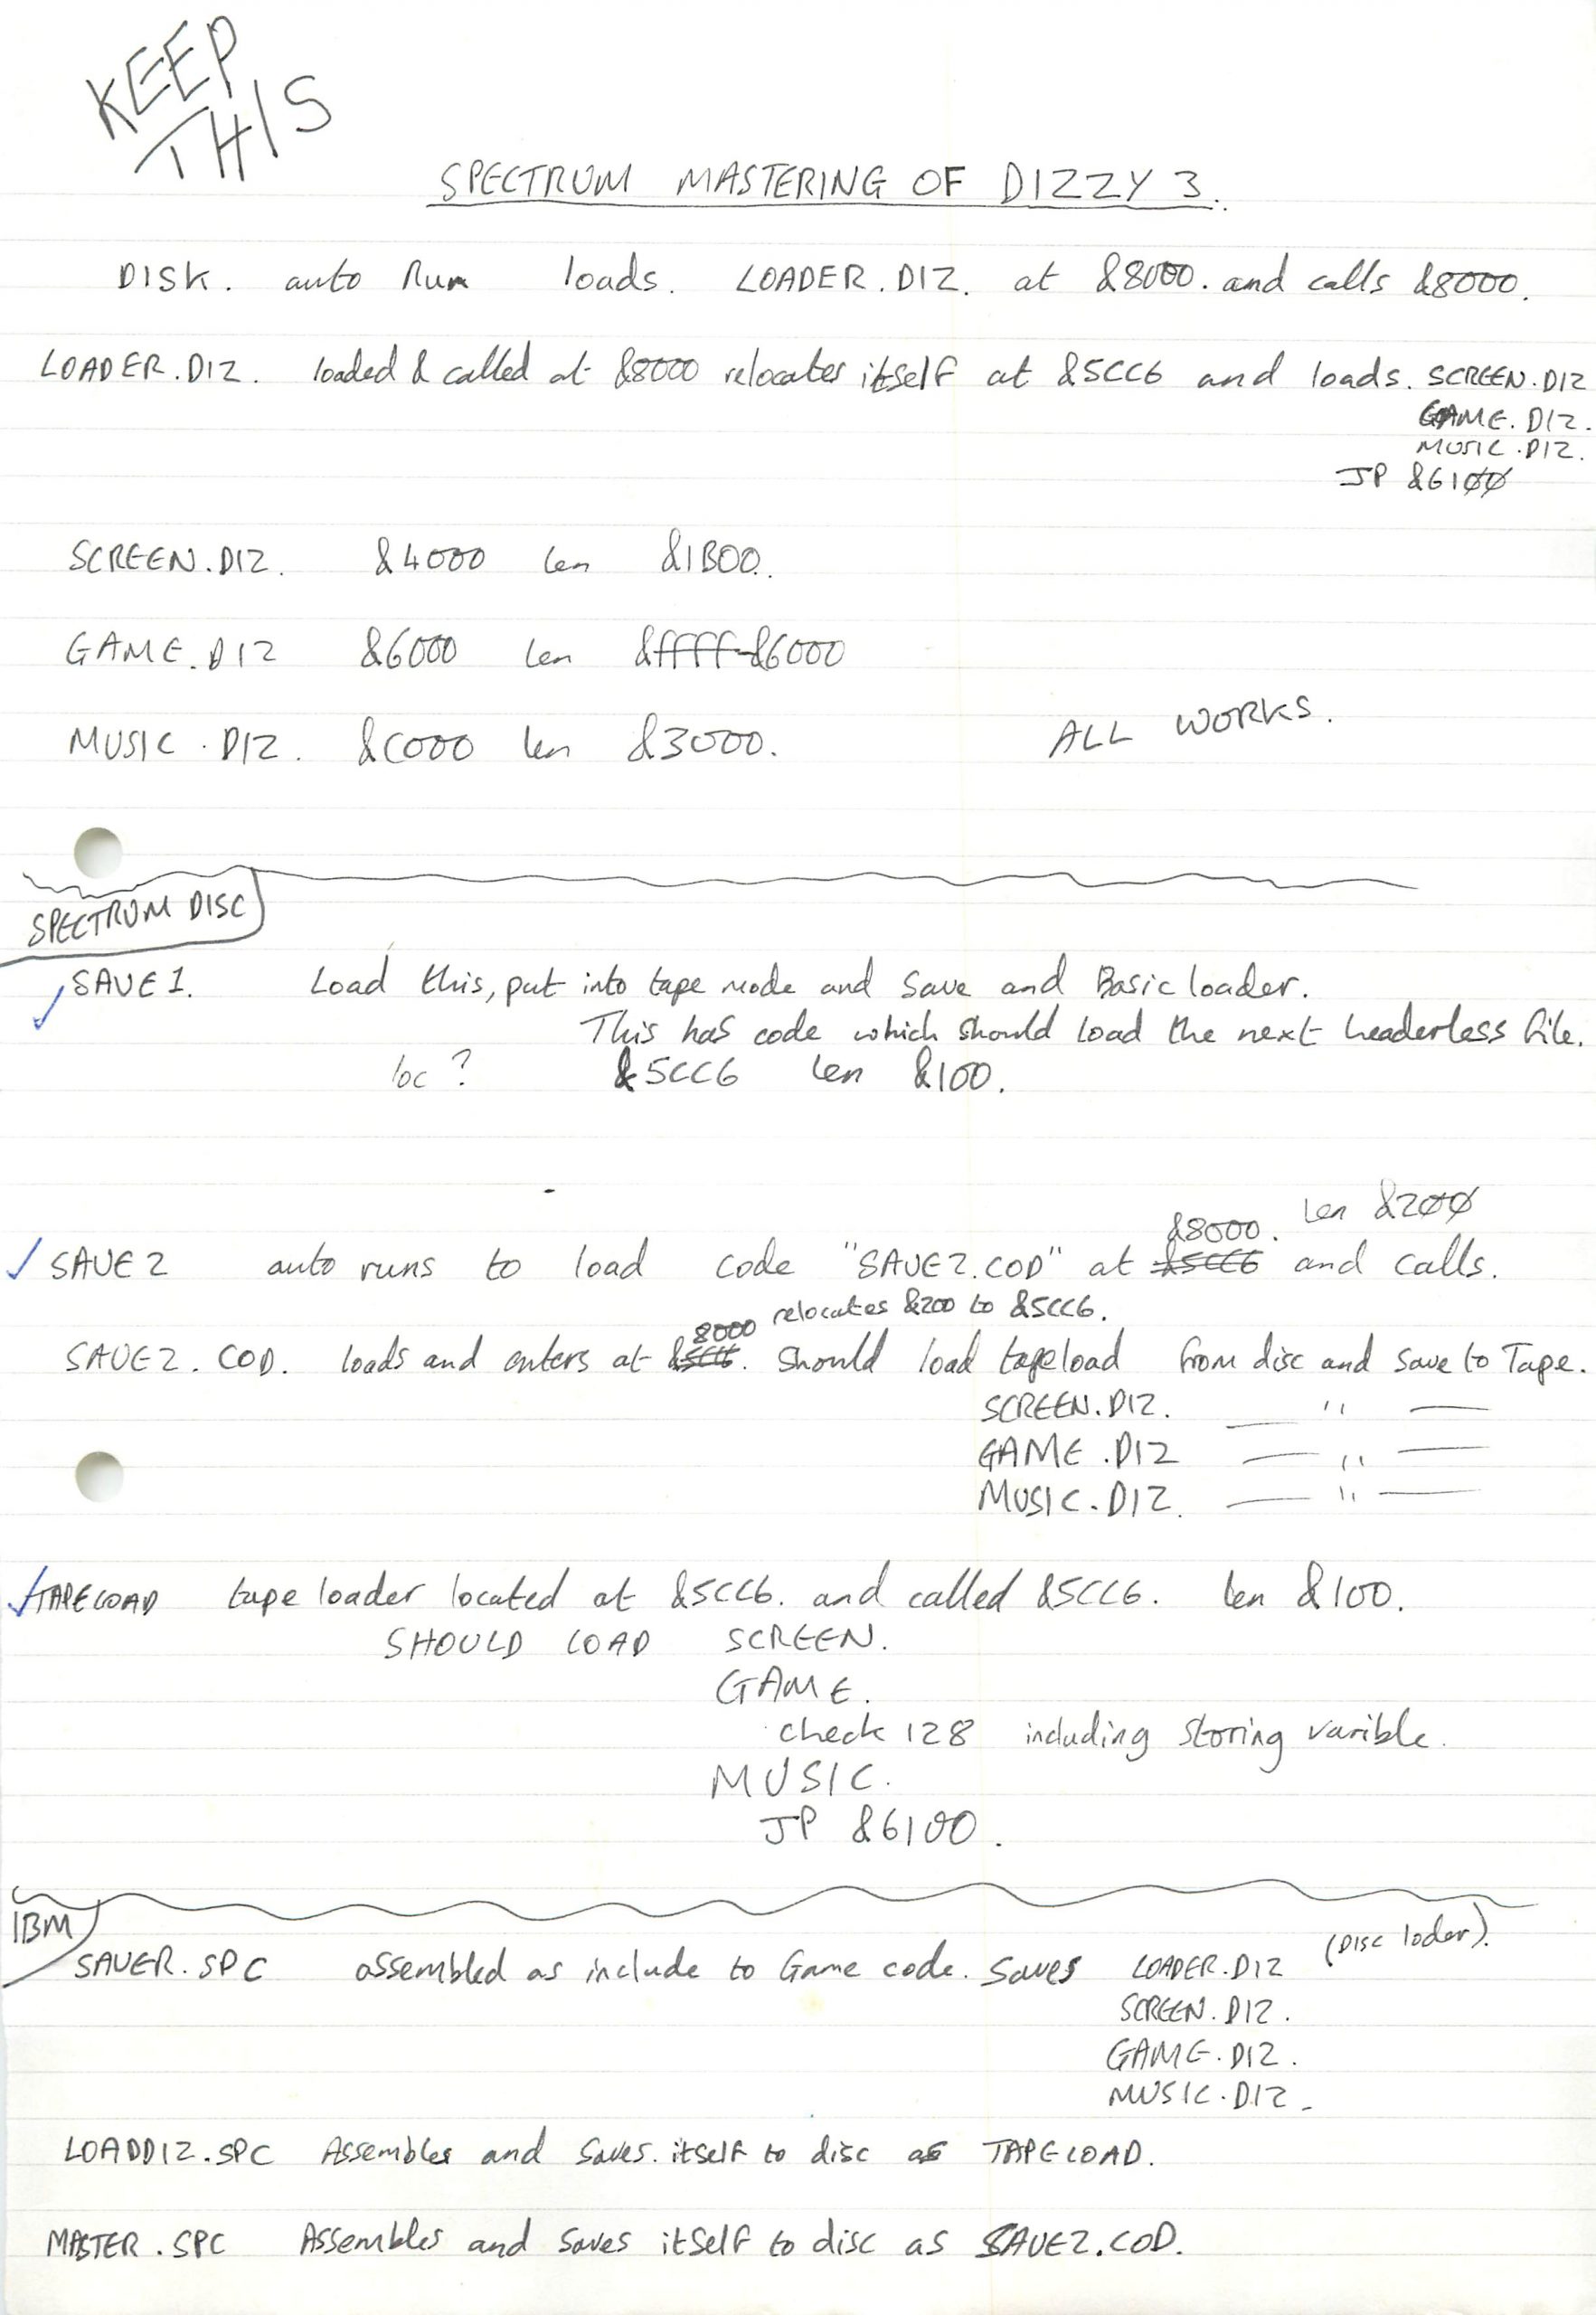 KEEP
THIS
SPECTRUM MASTERING OF DIZZY 3.
DISK. auto Run loads. LOADER.DIZ. at &8000. and calls &8000.
LOADER.DIZ. loaded & called at &8000 relocates itself at &5CC6 and loads. SCREEN.DIZ
GAME.DIZ.
MUSIC.DIZ.
JP &6100
SCREEN.DIZ. &4000 len &1B00.
GAME.DIZ &6000 len &ffff-&6000
MUSIC.DIZ. &C000 len &3000.
ALL WORKS.
SPECTRUM DISC
SAVE1. Load this, put into tape mode and save and Basic loader.
This has code which should load the next headerless file.
loc? &5CC6 len &100.
&8000. len &200
SAVE2 auto runs to load code "SAVE2.COD" at &5CC6 and calls.
8000 relocates &200 to &5CC6.
SAVE2.COD. loads and enters at &5CC6. should load tapeload from disc and save to Tape.
SCREEN.DIZ. — " —
GAME.DIZ — " —
MUSIC.DIZ. — " —
TAPELOAD tape loader located at &5CC6. and called &5CC6. len &100.
SHOULD LOAD SCREEN.
GAME.
check 128 including storing varible.
MUSIC.
JP &6100.
IBM
SAVER.SPC assembled as include to Game code. Saves LOADER.DIZ (DISC loder).
SCREEN.DIZ.
GAME.DIZ.
MUSIC.DIZ.
LOADDIZ.SPC Assembles and saves. itself to disc as TAPELOAD.
MASTER.SPC Assembles and saves itself to disc as SAVE2.COD.